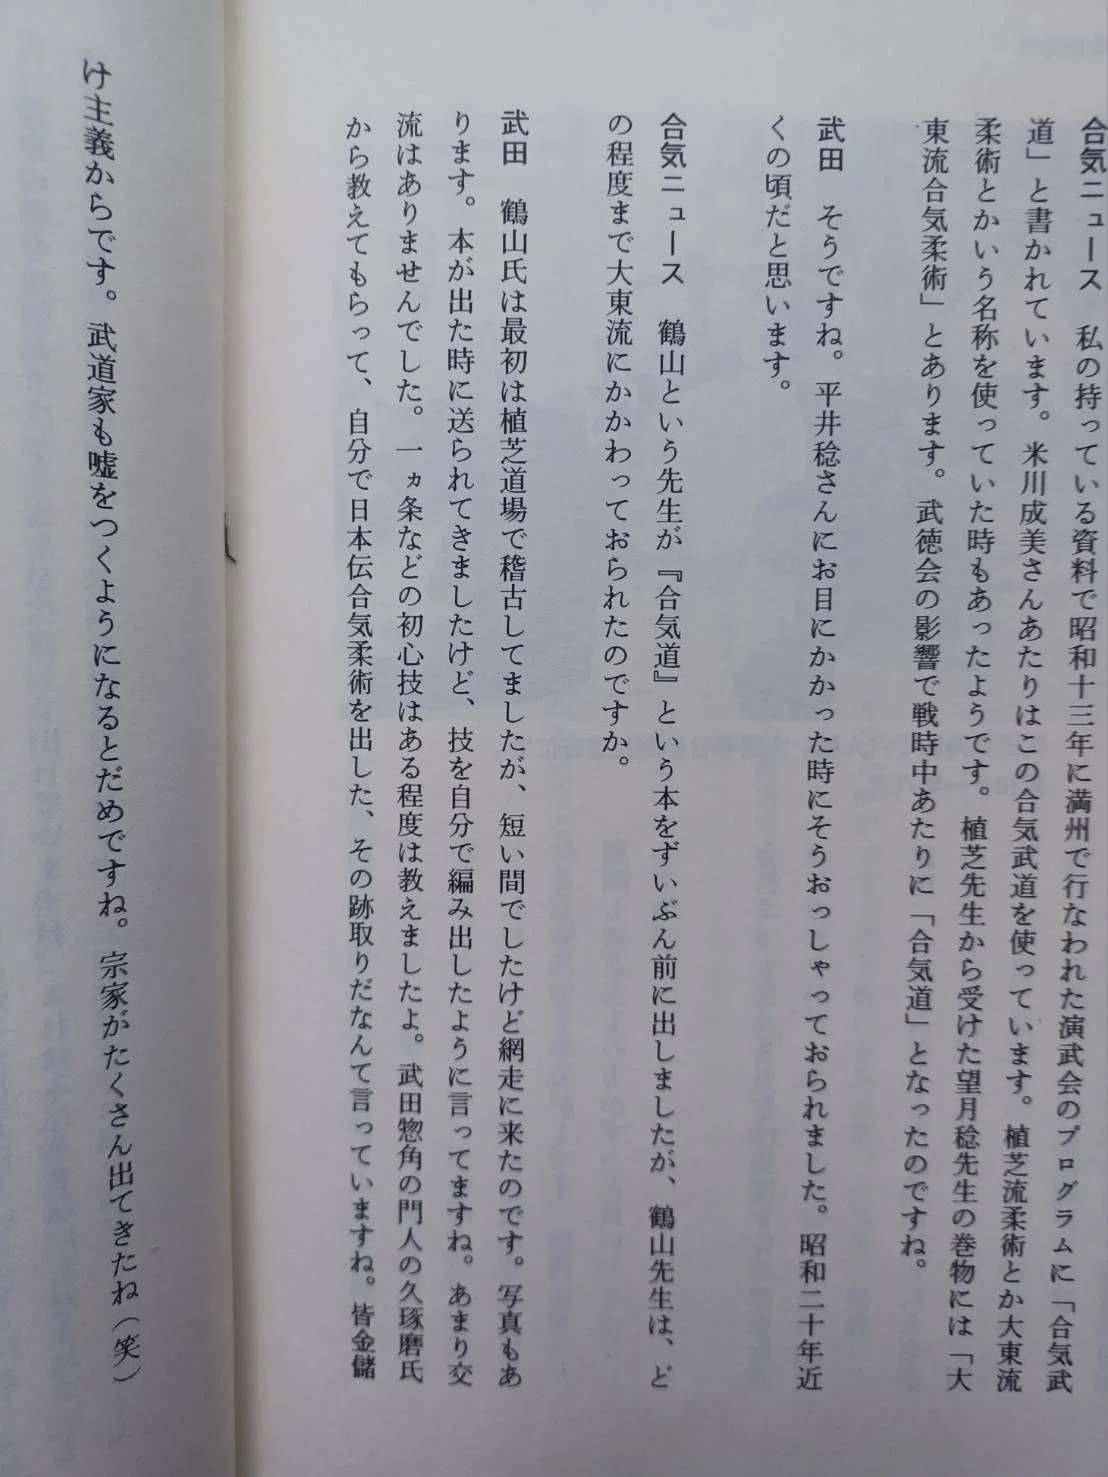 合気ニュース　私の持っている資料で昭和十三年に満州で行なわれた演武会のプログラムに「合気武
道」と書かれています。米川成美さんあたりはこの合気武道を使っています。植芝流柔術とか大東流
柔術とかいう名称を使っていた時もあったようです。植芝先生から受けた望月稔先生の巻物には「大
東流合気柔術」とあります。武徳会の影響で戦時中あたりに「合気道」となったのですね。
武田　そうですね。平井稔さんにお目にかかった時にそうおっしゃっておられました。昭和二十年近
くの頃だと思います。
合気ニュース　鶴山という先生が『合気道』という本をずいぶん前に出しましたが、鶴山先生は、ど
の程度まで大東流にかかわっておられたのですか。
武田　鶴山氏は最初は植芝道場で稽古してましたが、短い間でしたけど網走に来たのです。写真もあ
ります。本が出た時に送られてきましたけど、技を自分で編み出したように言ってますね。あまり交
流はありませんでした。一ヵ条などの初心技はある程度は教えましたよ。武田惣角の門人の久琢磨氏
から教えてもらって、自分で日本伝合気柔術を出した、その跡取りだなんて言っていますね。皆金儲
け主義からです。武道家も嘘をつくようになるとだめですね。宗家がたくさん出てきたね（笑）